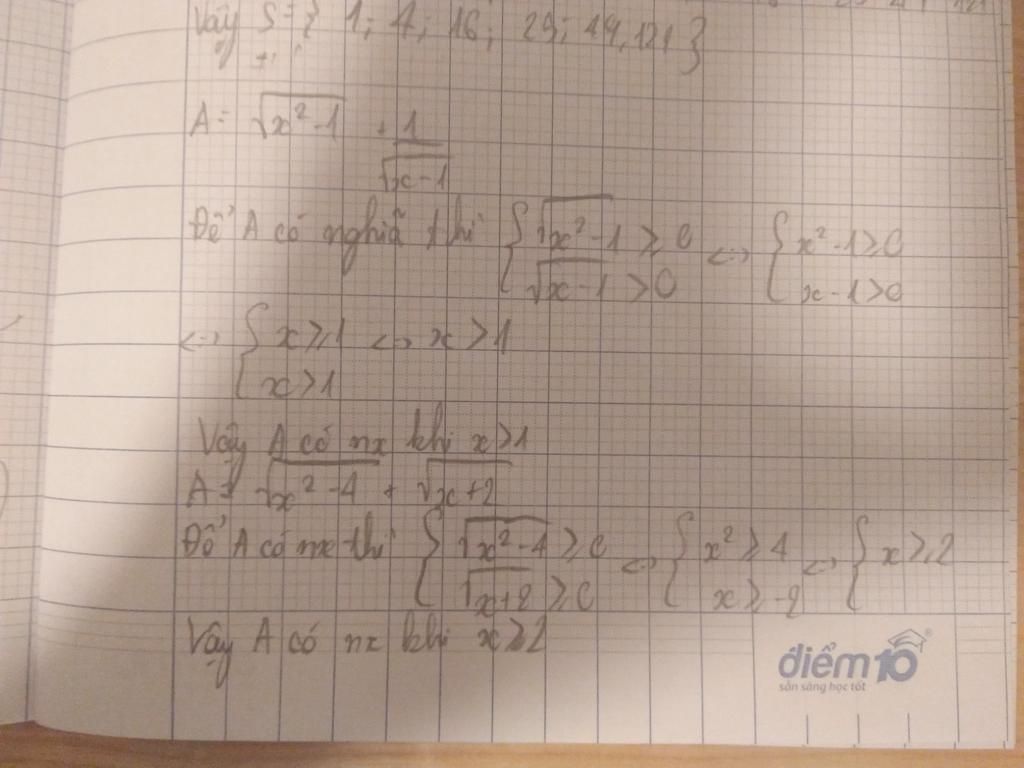 Vậy S = { 1; 4; 16; 25; 49, 121 }
A = √(x² - 1) + 1/√(x - 1)
Để A có nghĩã thì { √(x² - 1) ≥ 0 <=> { x² - 1 ≥ 0
{ √(x - 1) > 0 { x - 1 > 0
<=> { x ≥ 1 <=> x > 1
{ x > 1
Vậy A có nx khi x > 1
A = √(x² - 4) + √(x + 2)
Để A có nx thì { √(x² - 4) ≥ 0 <=> { x² ≥ 4 <=> { x ≥ 2
{ √(x + 2) ≥ 0 { x ≥ -2
Vậy A có nx khi x ≥ 2
điểm10®
sẵn sàng học tốt